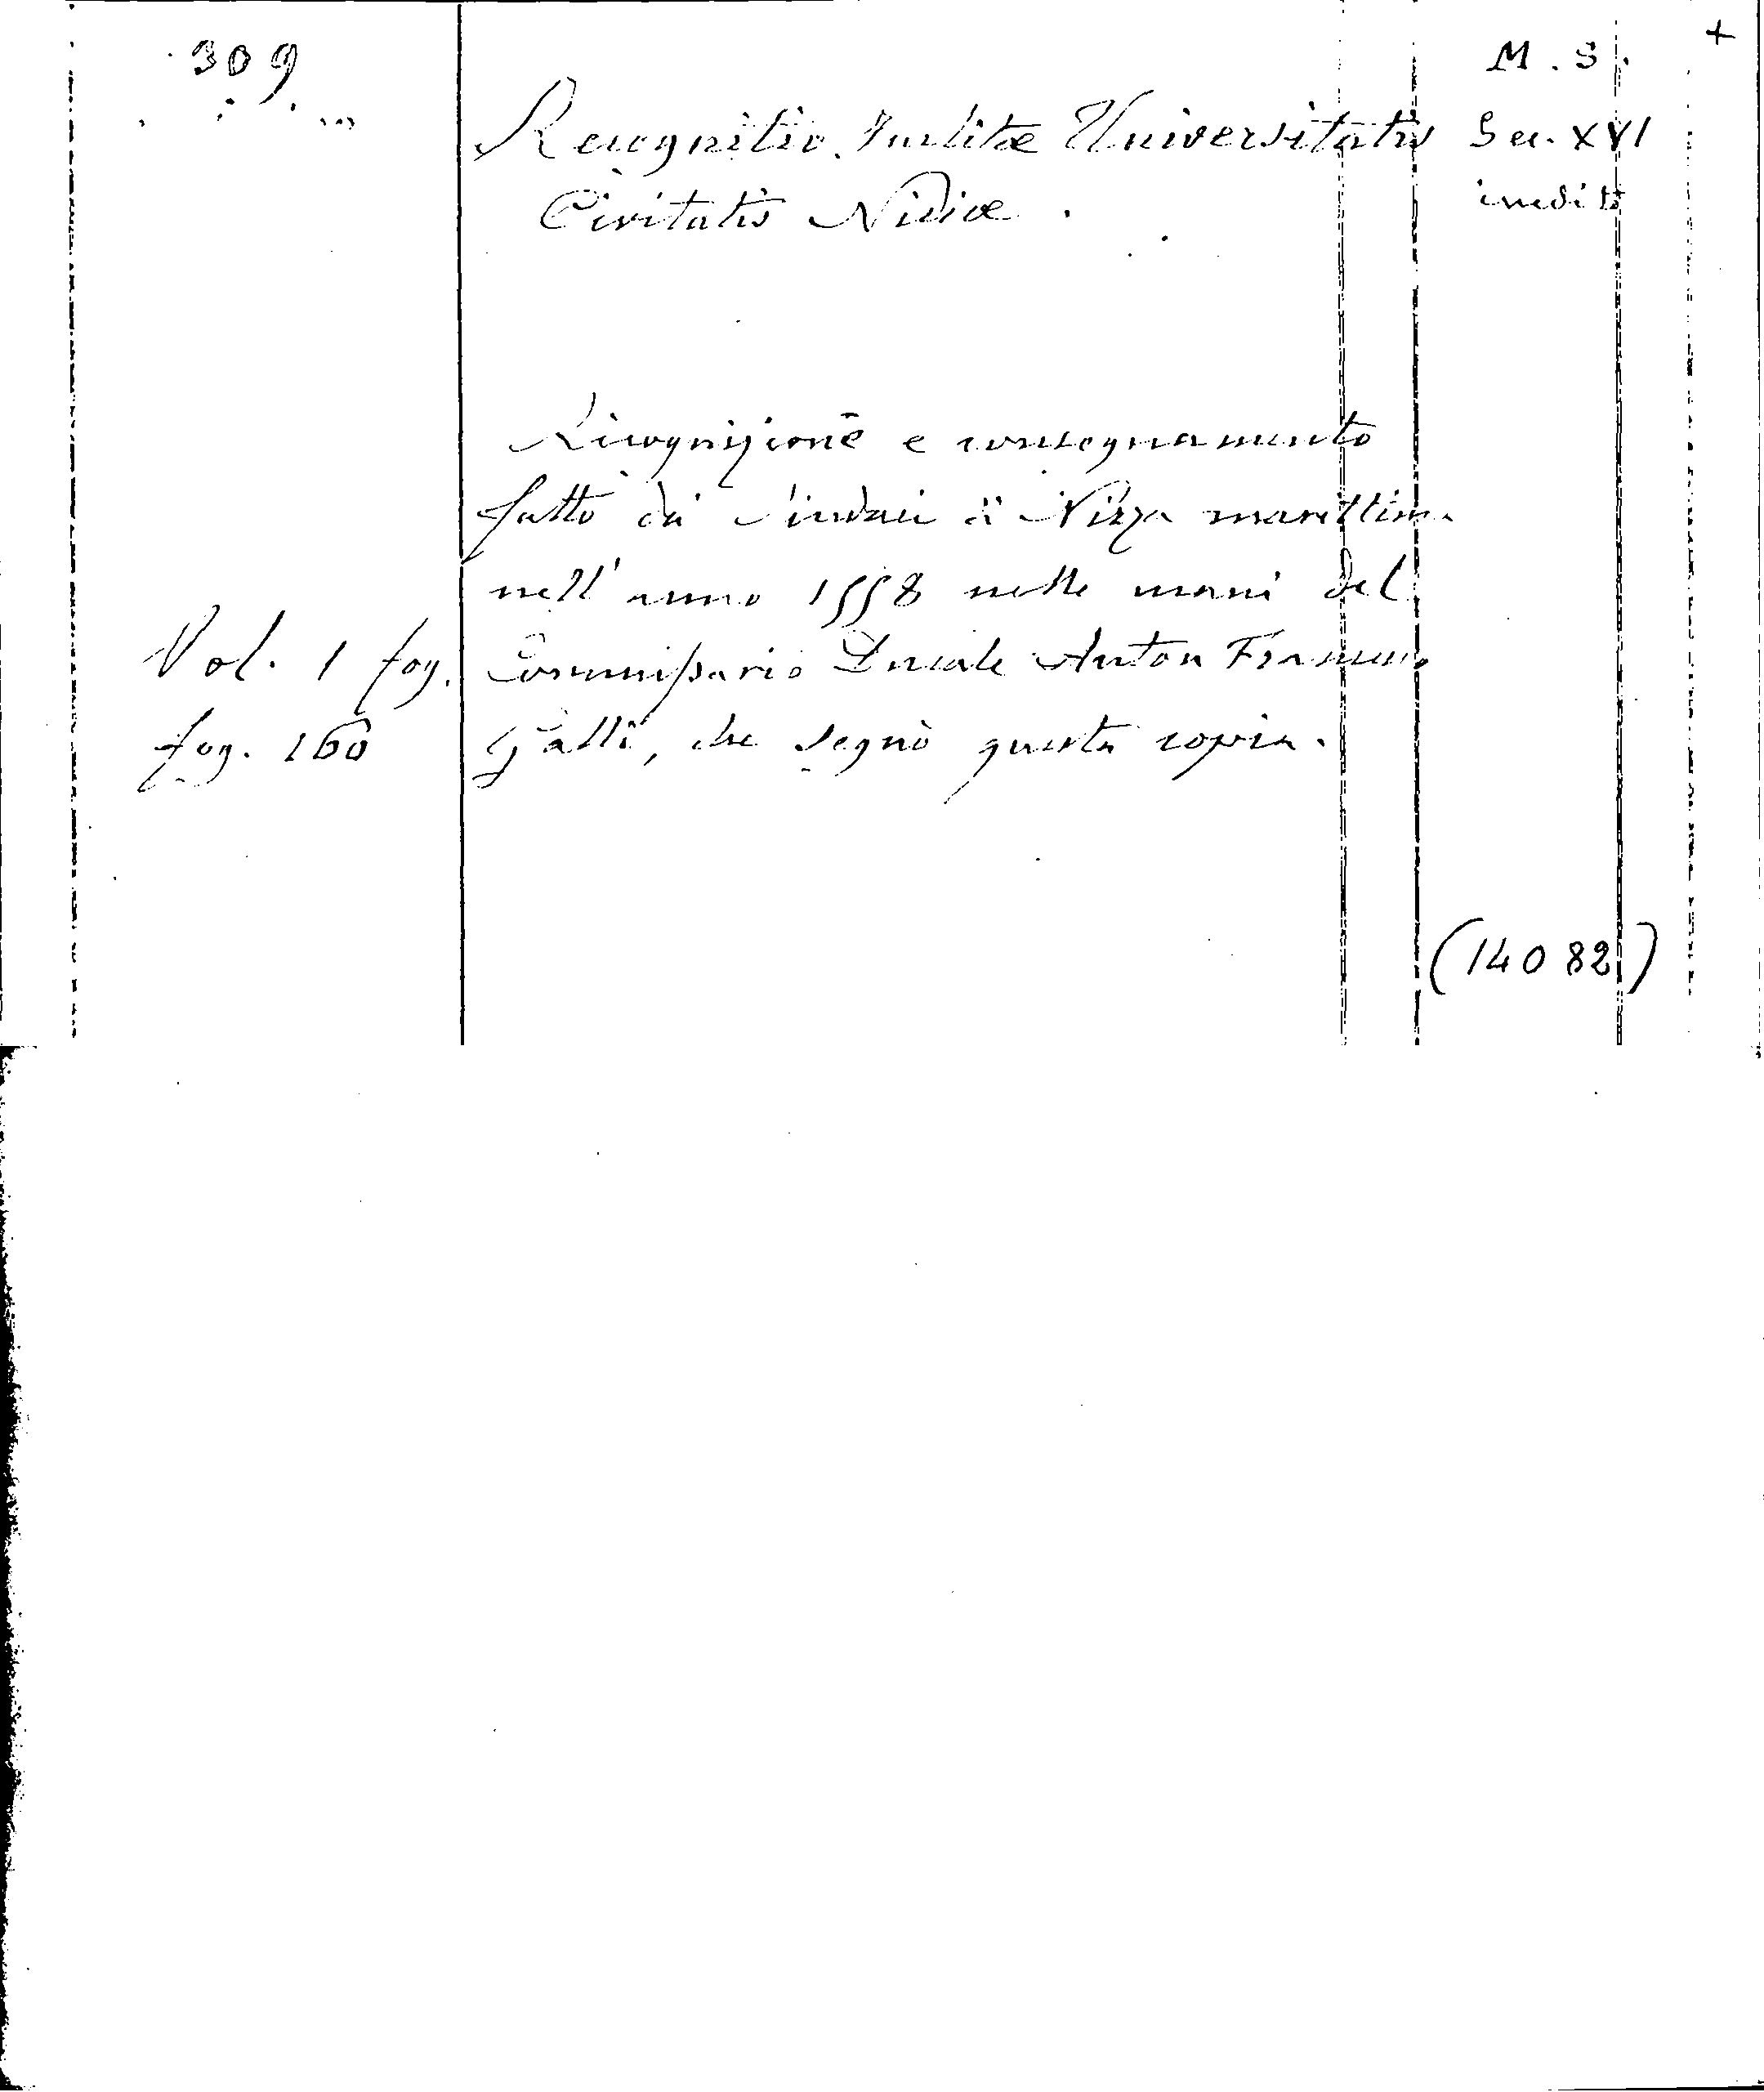 309
M. S. +
Recognitio Inclitæ Universitatis
Sec. XVI
Civitatis Niciæ.
inedito
Ricognizione e consegnamento
fatto da' Sindaci di Nizza marittima
nell' anno 1558 nelle mani del
Vol. 1 fog.
Commissario Ducale Anton Francesco
fog. 160
Galli, che segnò questa copia.
(14082)